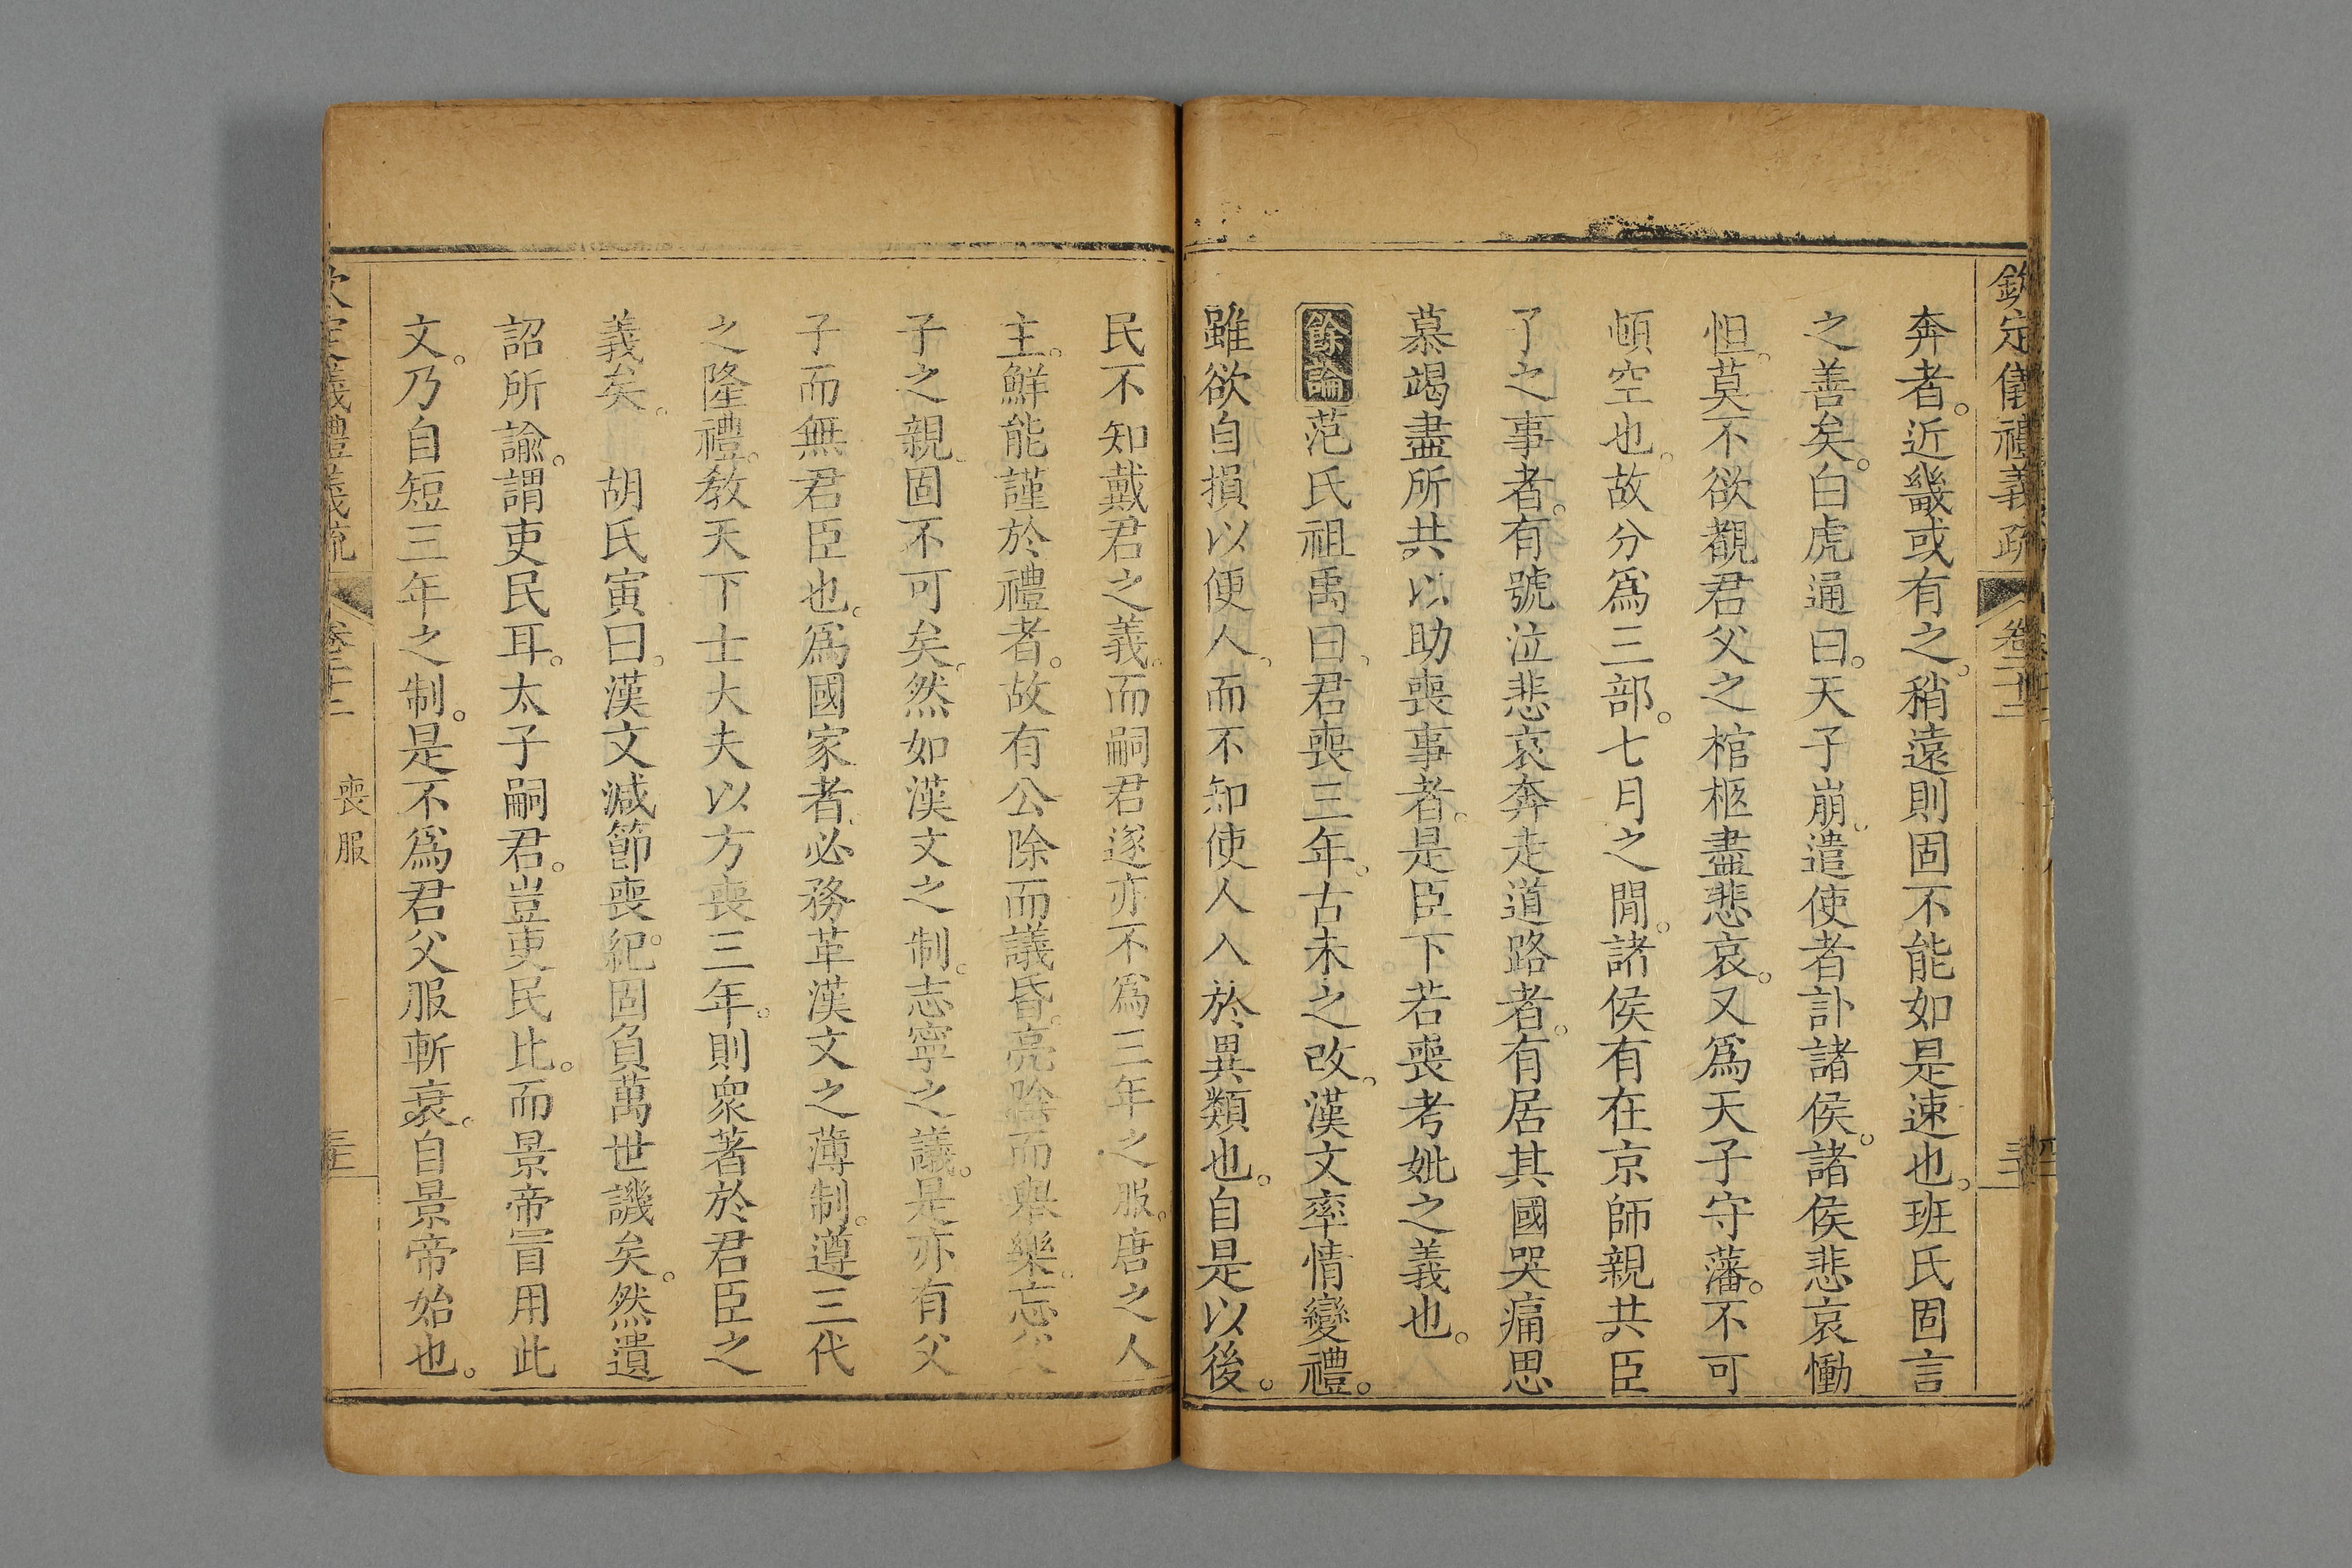 欽定儀禮義疏 卷二十二
奔者。近畿或有之。稍遠則固不能如是速也。班氏固言
之善矣。白虎通曰。天子崩。遣使者訃諸侯。諸侯悲哀慟
怛。莫不欲覩君父之棺柩盡悲哀。又為天子守藩。不可
頓空也。故分為三部。七月之間。諸侯有在京師親共臣
子之事者。有號泣悲哀奔走道路者。有居其國哭痛思
慕竭盡所共以助喪事者。是臣下若喪考妣之義也。
餘論 范氏祖禹曰。君喪三年。古未之改。漢文率情變禮。
雖欲自損以便人。而不知使人入於異類也。自是以後。
民不知戴君之義。而嗣君遂亦不為三年之服。唐之人
主。鮮能謹於禮者。故有公除而議昏。亮陰而舉樂。忘父
子之親。固不可矣。然如漢文之制。志寧之議。是亦有父
子而無君臣也。為國家者。必務革漢文之薄制。遵三代
之隆禮。教天下士大夫以方喪三年。則衆著於君臣之
義矣。 胡氏寅曰。漢文減節喪紀。固負萬世譏矣。然遺
詔所諭。謂吏民耳。太子嗣君。豈吏民比。而景帝冒用此
文。乃自短三年之制。是不為君父服斬衰。自景帝始也。
定義禮義疏 卷二十二 喪服